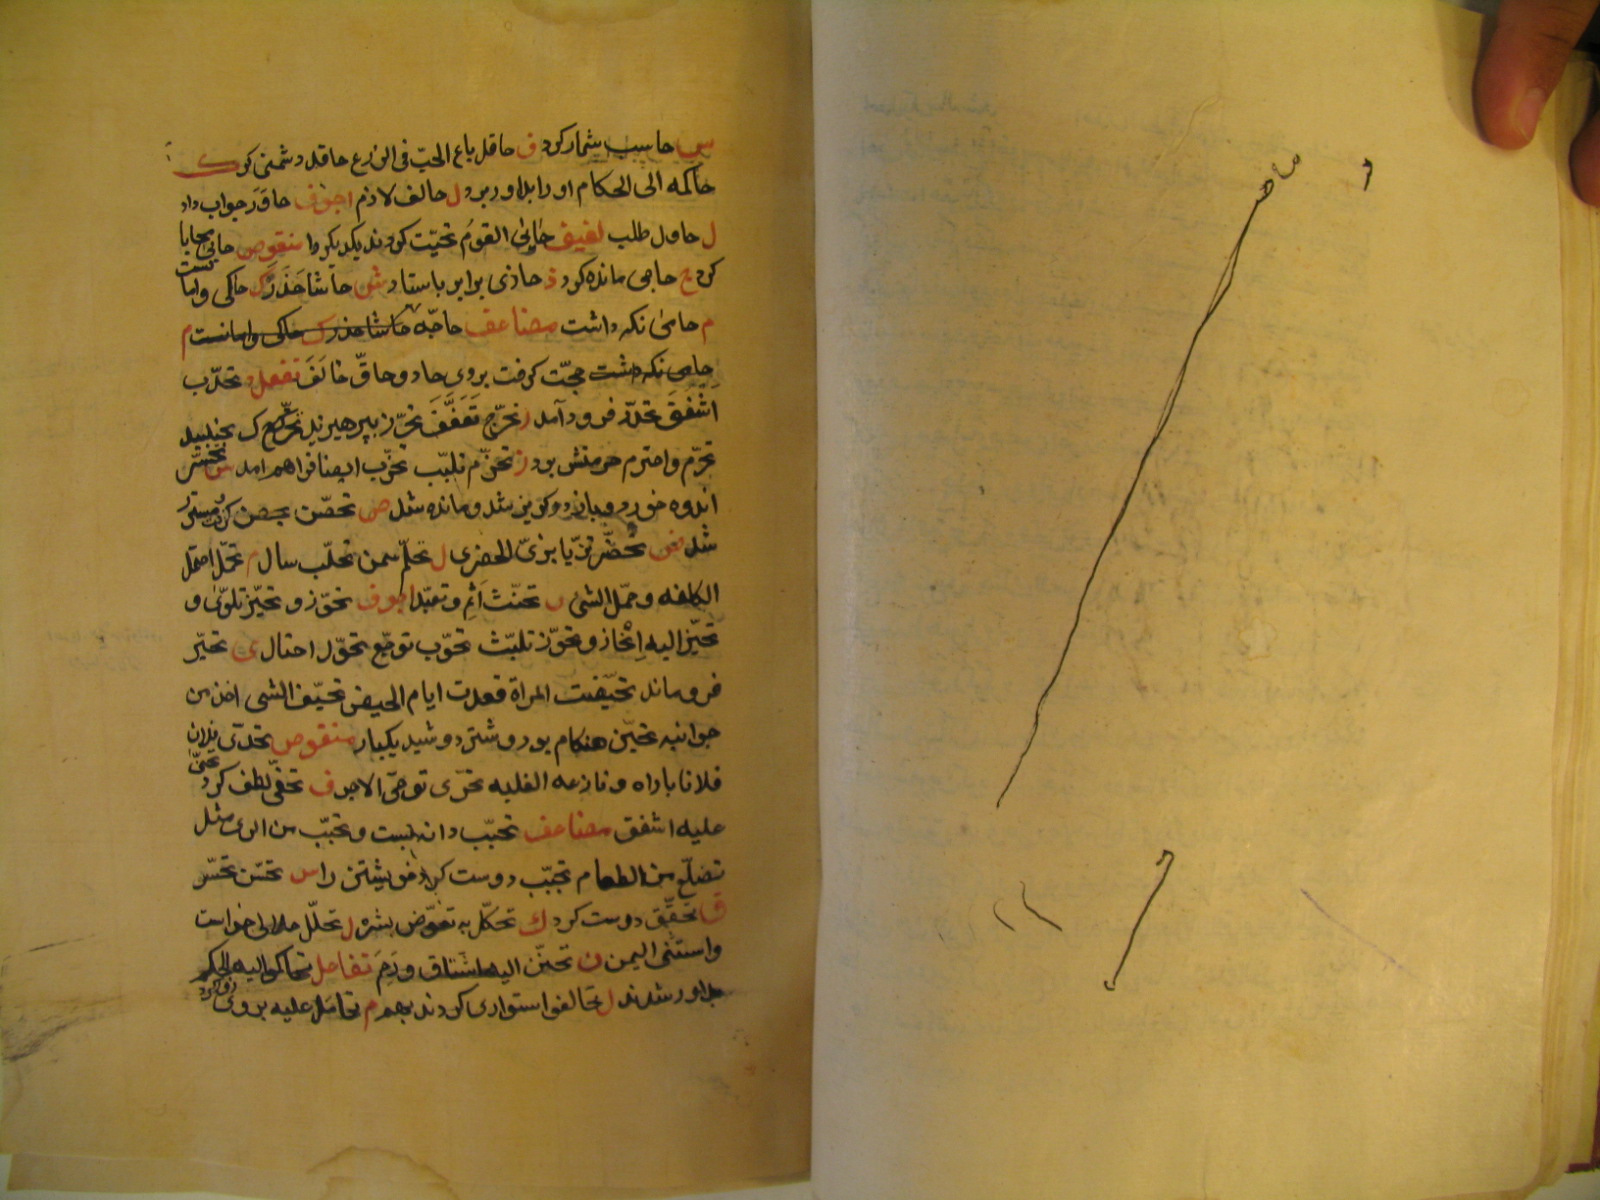 س حاسب شمار کرد ق حاقل باع الحبّ فی الزرع حاقد دشمنی کرد ک
حاکمه الی الحکام او را بداور برد ل حالف لازم اجوف حاوَرَ جواب داد
ل حاول طلب لفیف حایّی القومُ تحیّت کردند یکدیکر را منقوص حابی محابا
کرد ج حاجی مانده کرد ذ حاذی برابر باستاد ش حاشا حَذَرَ ک حاکی وامانست
م حامیٰ نکه داشت مضاعف حاجّه حاشا حذر ک حاکی وامانست م
حامی نکه داشت حجّت کرفت بر وی حادّ و حاقّ خالَفَ تفعل د تحدّب
اَشْفَقَ تحدّر فرود آمد ر تحرّج تحرّز بپرهیزید تحرّک بجنبید
تحرّم واحترم حرمتش بود ز تحزّم تلبّب تحزّب ایضا فراهم امد س تحسّر
اندوه خورد شد و مانده شد ص تحصّن بحصن
شد ض تحضّر تزیّا بزیّ الحضری ل تحلّم سمن تحلّب سال م تحمّل احتمل
الکلفه و حمّل الشیٔ ن تحنّث اَثِم و تعبّد اجوف تحوّز و تحیّز تلوّی و
تحیّز الیه اِنْحاز و تحوّز تلبّث تحوّب توجّع تحوّل احتال ی تحیّر
فروماند تحیّضت المراة قعدت ایام الحیض تحیّف الشی اخذ من
جوانبه تحیّن هنکام بود و شتر دوشید یکبار منقوص تحدّی فلان
فلانا باراه و نازعه الغلبه تحرّی توخّی الاجر ف تحفّی لطف کرد تحنّی
علیه اشفق مضاعف تحبّب و تحبّب من الریّ مثل
تضلّع من الطعام تحبّب دوست کرد خویشتن را س تحسّن تحسّر
ق تحقّق دوست کرد ک تحکّک به تعرّض بشره ل تحلّل حلالی خواست
واستثنی الیمین ن تحنّن الیه اشتاق و رَحِمَ تفاعل تحاکموا الیه الحکم
بداور شدند ل تحالفوا استواری کردند بهم م تحامَل علیه بر وی زور کرد